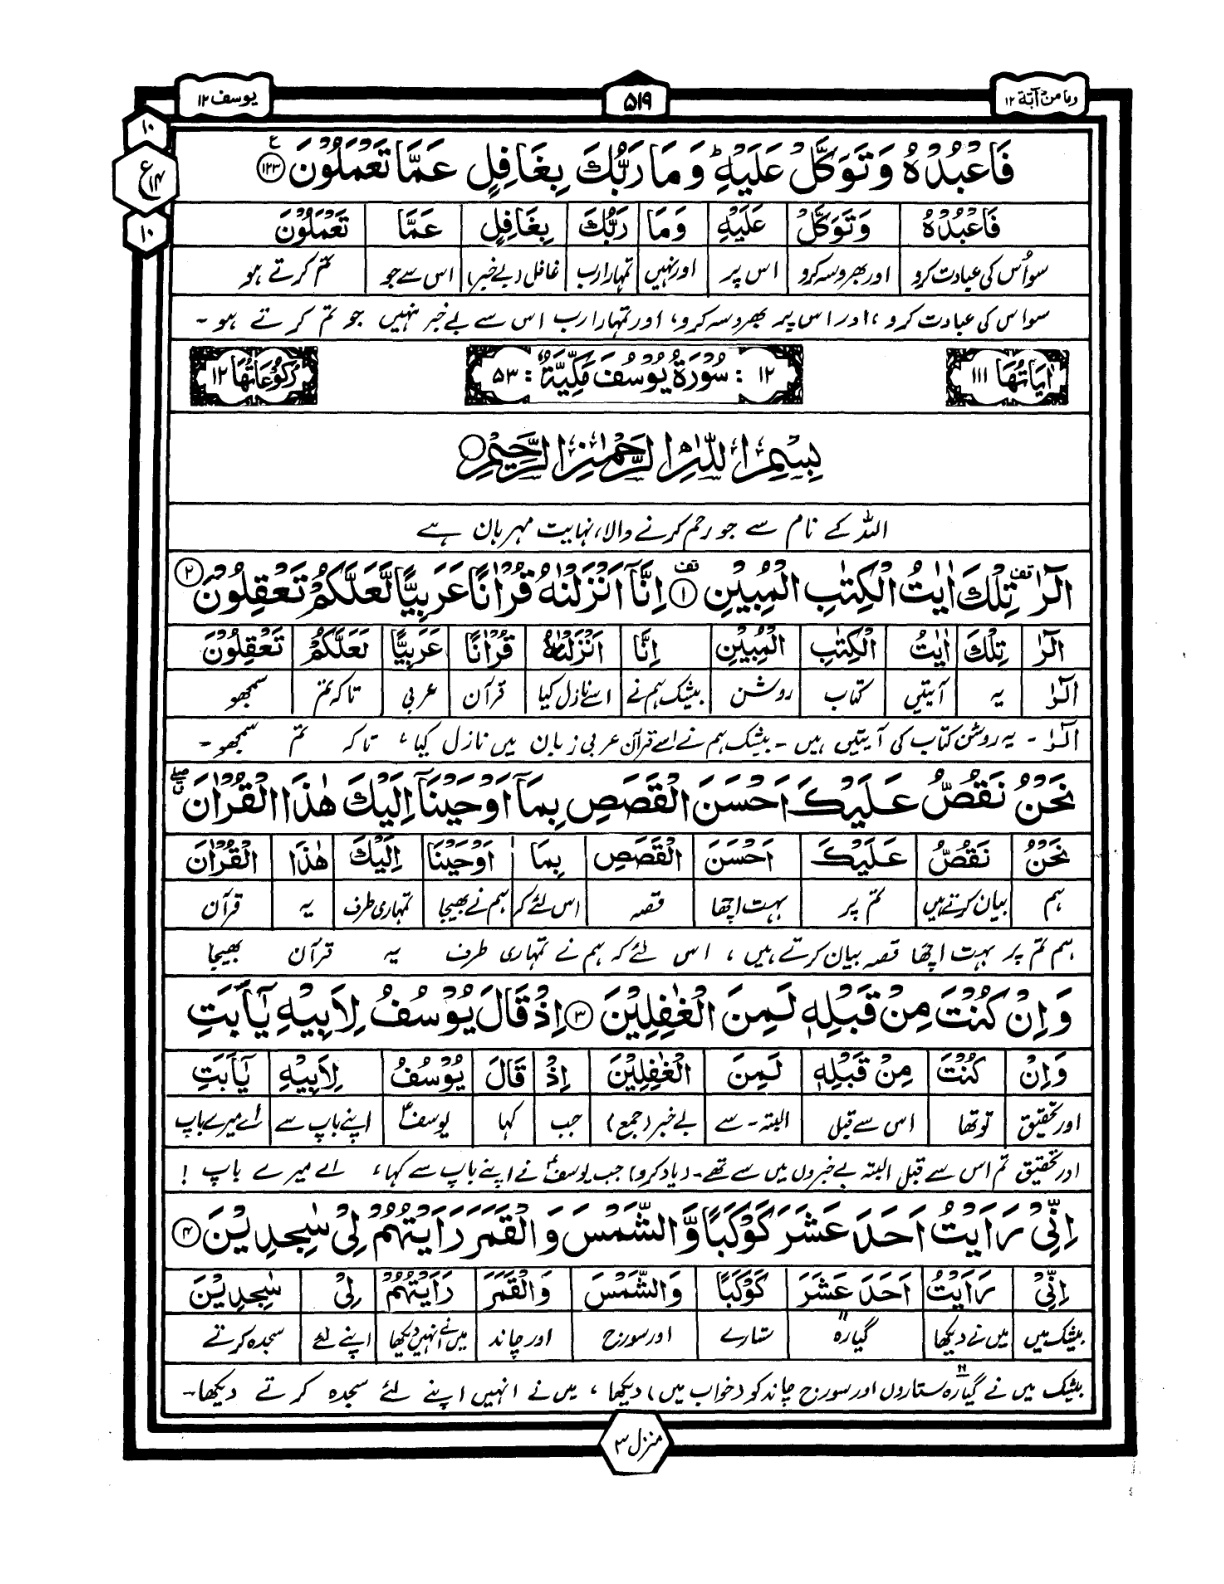 وما من دآبة ۱۲ ۵۱۹ یوسف ۱۲
۱۰
ع ۱۴
۱۰
فَاعْبُدْهُ وَتَوَكَّلْ عَلَيْهِ ؕ وَمَا رَبُّكَ بِغَافِلٍ عَمَّا تَعْمَلُوْنَ ۝۱۲۳
فَاعْبُدْهُ وَتَوَكَّلْ عَلَيْهِ وَمَا رَبُّكَ بِغَافِلٍ عَمَّا تَعْمَلُوْنَ
سو اُس کی عبادت کرو اور بھروسہ کرو اس پر اور نہیں تمہارا رب غافل (بے خبر) اس سے جو تم کرتے ہو
سو اس کی عبادت کرو، اور اس پر بھروسہ کرو، اور تمہارا رب اس سے بے خبر نہیں جو تم کرتے ہو۔
اٰیَاتُهَا ۱۱۱ ۱۲ : سُوْرَةُ يُوْسُفَ مَكِّيَّةٌ : ۵۳ رُكُوْعَاتُهَا ۱۲
بِسْمِ اللّٰهِ الرَّحْمٰنِ الرَّحِيْمِ
اللہ کے نام سے جو رحم کرنے والا، نہایت مہربان ہے
الٓرٰ ۫ تِلْكَ اٰيٰتُ الْكِتٰبِ الْمُبِيْنِ ۝۱ اِنَّاۤ اَنْزَلْنٰهُ قُرْاٰنًا عَرَبِيًّا لَّعَلَّكُمْ تَعْقِلُوْنَ ۝۲
الٓرٰ تِلْكَ اٰيٰتُ الْكِتٰبِ الْمُبِيْنِ اِنَّا اَنْزَلْنٰهُ قُرْاٰنًا عَرَبِيًّا لَعَلَّكُمْ تَعْقِلُوْنَ
الٓرٰ یہ آیتیں کتاب روشن بیشک ہم نے اسے نازل کیا قرآن عربی تاکہ تم سمجھو
الٓرٰ۔ یہ روشن کتاب کی آیتیں ہیں۔ بیشک ہم نے اسے قرآن عربی زبان میں نازل کیا، تاکہ تم سمجھو۔
نَحْنُ نَقُصُّ عَلَيْكَ اَحْسَنَ الْقَصَصِ بِمَاۤ اَوْحَيْنَاۤ اِلَيْكَ هٰذَا الْقُرْاٰنَ ۖ
نَحْنُ نَقُصُّ عَلَيْكَ اَحْسَنَ الْقَصَصِ بِمَا اَوْحَيْنَا اِلَيْكَ هٰذَا الْقُرْاٰنَ
ہم بیان کرتے ہیں تم پر بہت اچھا قصہ اس لئے کہ ہم نے بھیجا تمہاری طرف یہ قرآن
ہم تم پر بہت اچھا قصہ بیان کرتے ہیں، اس لئے کہ ہم نے تمہاری طرف یہ قرآن بھیجا
وَاِنْ كُنْتَ مِنْ قَبْلِهٖ لَمِنَ الْغٰفِلِيْنَ ۝۳ اِذْ قَالَ يُوْسُفُ لِاَبِيْهِ يٰۤاَبَتِ
وَاِنْ كُنْتَ مِنْ قَبْلِهٖ لَمِنَ الْغٰفِلِيْنَ اِذْ قَالَ يُوْسُفُ لِاَبِيْهِ يٰۤاَبَتِ
اور تحقیق تو تھا اس سے قبل البتہ۔ سے بے خبر (جمع) جب کہا یوسفؑ اپنے باپ سے اے میرے باپ
اور تحقیق تم اس سے قبل البتہ بے خبروں میں سے تھے۔ (یاد کرو) جب یوسفؑ نے اپنے باپ سے کہا، اے میرے باپ !
اِنِّیْ رَاَيْتُ اَحَدَ عَشَرَ كَوْكَبًا وَّالشَّمْسَ وَالْقَمَرَ رَاَيْتُهُمْ لِیْ سٰجِدِيْنَ ۝۴
اِنِّیْ رَاَيْتُ اَحَدَ عَشَرَ كَوْكَبًا وَالشَّمْسَ وَالْقَمَرَ رَاَيْتُهُمْ لِیْ سٰجِدِيْنَ
بیشک میں میں نے دیکھا گیارہ ۱۱ ستارے اور سورج اور چاند میں نے انہیں دیکھا اپنے لئے سجدہ کرتے
بیشک میں نے گیارہ ۱۱ ستاروں اور سورج چاند کو (خواب میں) دیکھا، میں نے انہیں اپنے لئے سجدہ کرتے دیکھا۔
منزل ۳